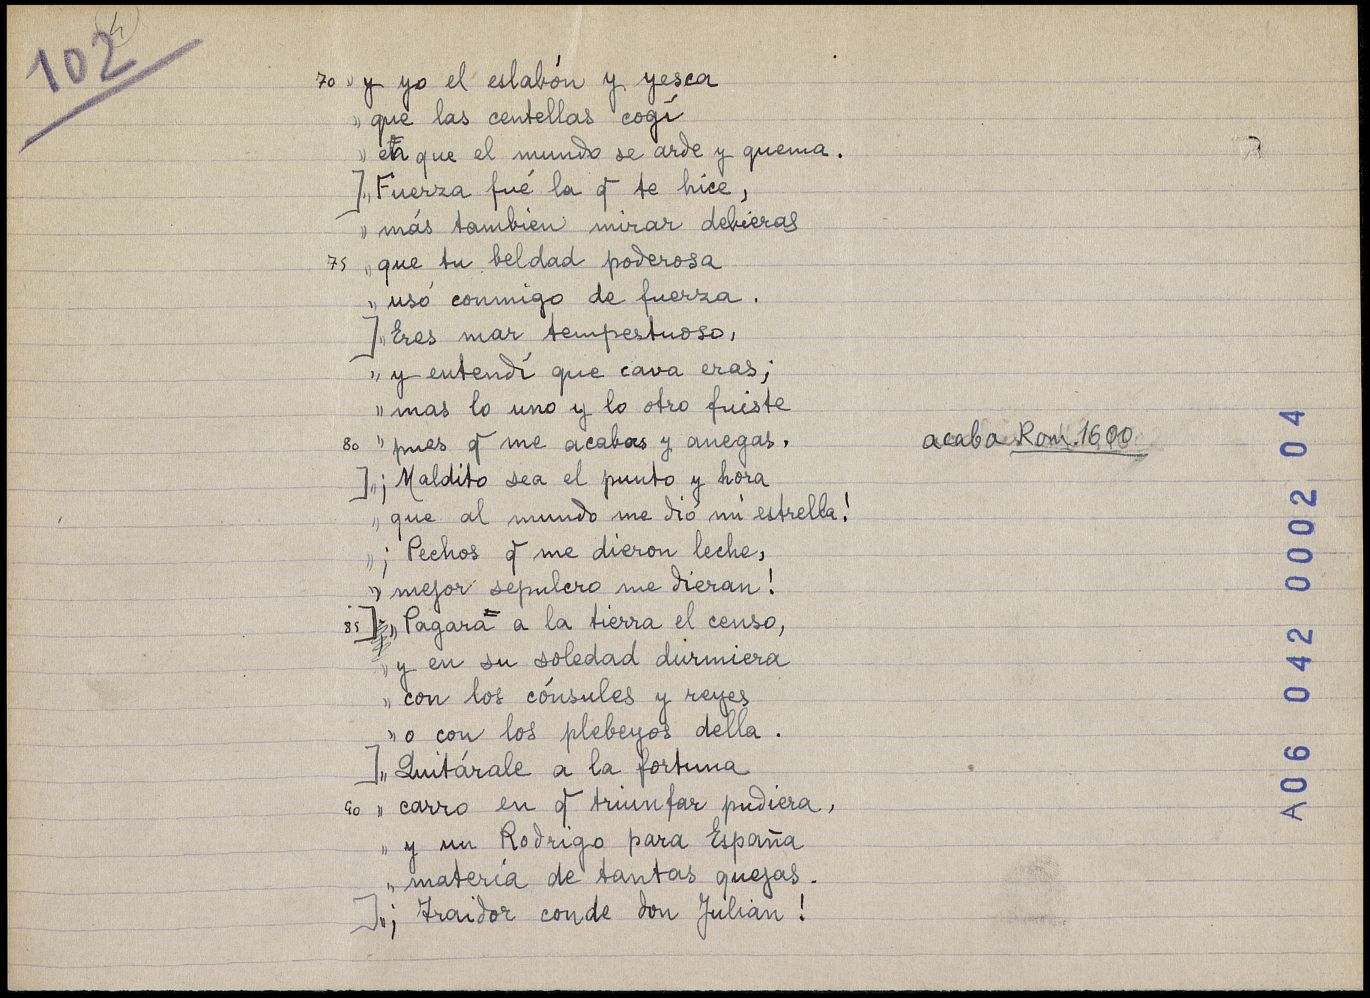 4
102
70 " y yo el eslabón y yesca
" que las centellas cogí
" en que el mundo se arde y quema.
] " Fuerza fué la q̄ te hice,
" más tambien mirar debieras
75 " que tu beldad poderosa
" usó conmigo de fuerza.
] " Eres mar tempestuoso,
" y entendí que cava eras;
" mas lo uno y lo otro fuiste
80 " pues q̄ me acabas y anegas. acaba Rom. 1600
] " ¡Maldito sea el punto y hora
" que al mundo me dió mi estrella!
" ¡Pechos q̄ me dieron leche,
" mejor sepulcro me dieran!
85 ] " Pagara a la tierra el censo,
" y en su soledad durmiera
" con los cónsules y reyes
" o con los plebeyos della.
] " Quitárale a la fortuna
90 " carro en q̄ triunfar pudiera,
" y un Rodrigo para España
" materia de tantas quejas.
] " ¡Traidor conde don Julián!
A06 042 0002 04